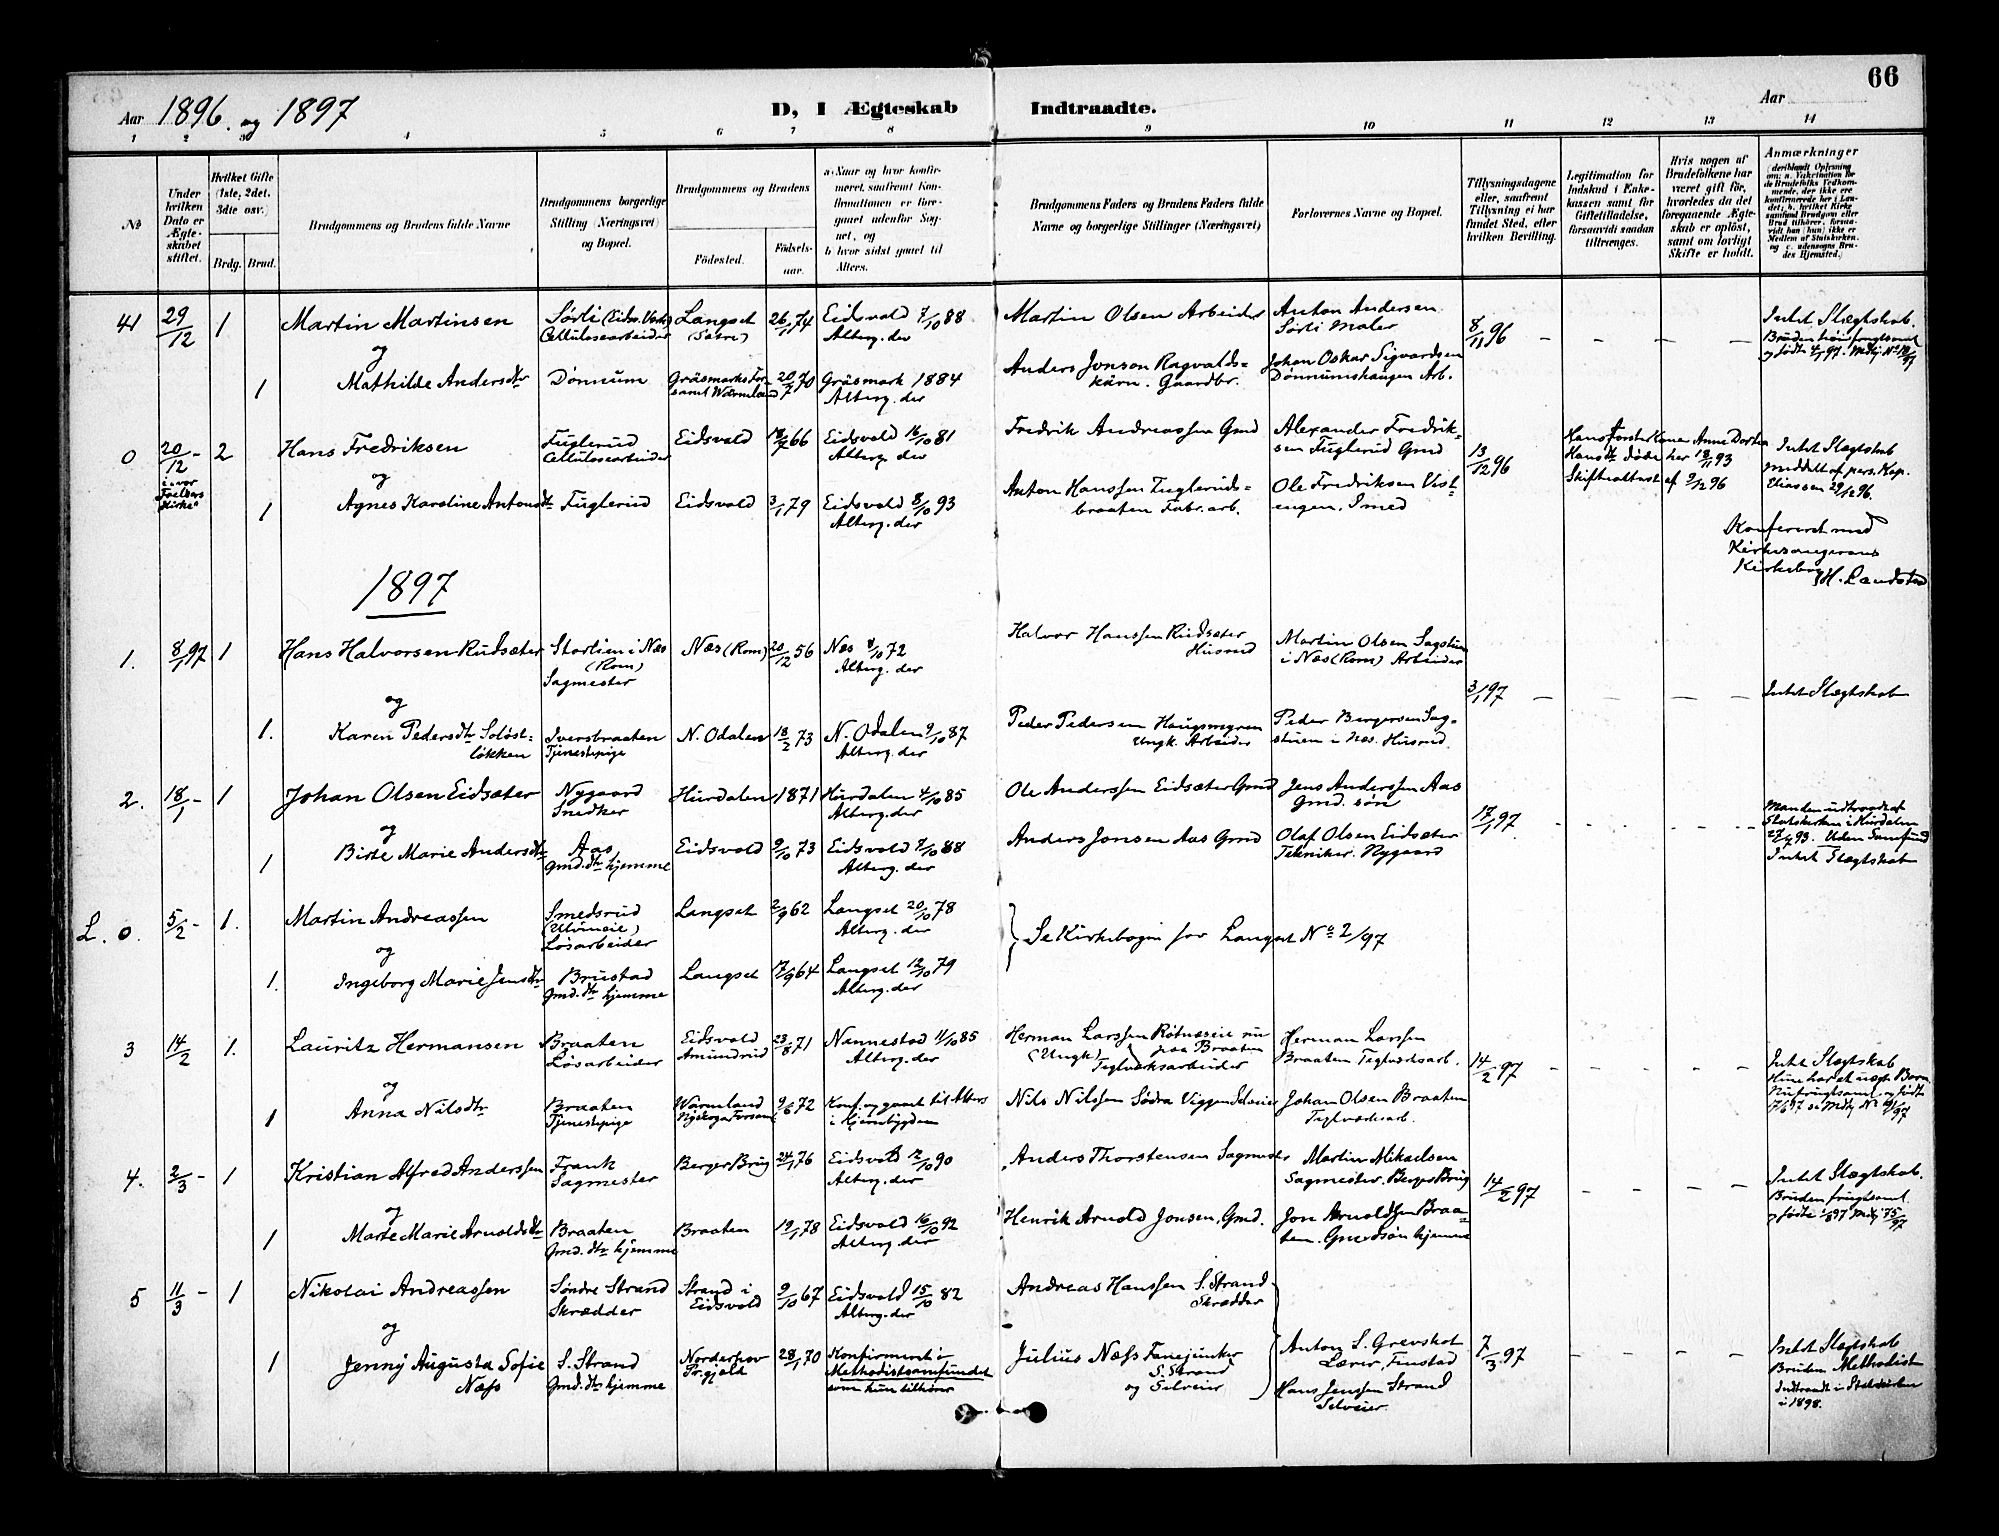 66
Aar 1896 og 1897
D, I Ægteskab Indtraadte.
Aar
1 2 3 4 5 6 7 8 9 10 11 12 13 14
No
Under hvilken Dato er Ægteskabet stiftet.
Hvilket Gifte (1ste, 2det, 3dte osv.)
Brdg. Brud.
Brudgommens og Brudens fulde Navne
Brudgommens borgerlige Stilling (Næringsvei) og Bopæl.
Brudgommens og Brudens
Fødested. Fødselsaar.
a. Naar og hvor konfirmeret, saafremt Konfirmationen er foregaaet udenfor Sognet, og
b. hvor sidst gaaet til Alters.
Brudgommens Faders og Brudens Faders fulde Navne og borgerlige Stillinger (Næringsvei)
Forlovernes Navne og Bopæl.
Tillysningsdagene eller, saafremt Tillysning ei har fundet Sted, efter hvilken Bevilling.
Legitimation for Indskud i Enkekassen samt for Giftetilladelse, forsaavidt saadan tiltrænges.
Hvis nogen af Brudefolkene har været gift før, hvorledes da det foregaaende Ægteskab er opløst, samt om lovligt Skifte er holdt.
Anmærkninger
41 29/12 1 Martin Martinsen Sørli (Eidsv. Verk) Langset 26/1 74 Eidsvold 7/10 88 Martin Olsen Arbeider Anton Andersen 8/11 96 Intet Slægtskab.
Cellulosearbeider (Sætre) Alterg. der Sørli Maler
og
1 Mathilde Andersdtr Dønnum Gräsmarks For- 20/7 70 Gräsmark 1884 Anders Jonson Ragvalds- Johan Oskar Sigvardsen
samt Wärmland Alterg. der kärn. Gaardbr. Dønnumshaugen Arb.
0 20/12 - 2 Hans Fredriksen Fuglerud Eidsvold 18/7 66 Eidsvold 16/10 81 Fredrik Andreassen Gmd Alexander Fredrik- 13/12 96 Intet Slægtskab
Cellulosearbeider Alterg. der sen Fuglerud Gmd
Hans første Kone Anne Dorthea Hansdtr døde her 18/11 93
Skifteattest af 9/12 96
meddelt af pers. Kap. Eliassen 29/12 96.
og
1 Agnes Karoline Antonsdtr Fuglerud Eidsvold 3/1 79 Eidsvold 8/10 93 Anton Hanssen Fuglerud- Ole Fredriksen Vest-
Alterg. der braaten Fabr. arb. engen. Smed
Konfereret med
Kirkesangerens
Kirkebog H. Landstad
1897
1. 8/1 97 1 Hans Halvorsen Rudsæter Storlien i Næs Næs (Rom) 20/12 56 Næs 4/10 72 Halvor Hanssen Rudsæter Martin Olsen Sagstuen
(Rom) Alterg. der Husmd i Næs (Rom) Arbeider
Sagmester
3/1 97 — — — Intet Slægtskab
og
1. Karen Pedersdtr Soløst- Iversbraaten N. Odalen 18/2 73 N. Odalen 9/10 87 Peder Pedersen Haugsmegren Peder Bergersen Sag-
løkken Tjenestepige Alterg. der Ungk. Arbeider stuen i Næs. Husmd.
2. 18/1 - 1 Johan Olsen Eidsæter Nygaard Hurdalen 1871 Hurdalen 4/10 85 Ole Anderssen Eidsæter Gmd Jens Anderssen Aas 17/1 97
Snedker Alterg. der Gmd. søn
Manden udtraadt af
Statskirken i Hurdalen
27/4 93. Uden Samfund
Intet Slægtskab
og
1 Birte Marie Andersdtr Aas Eidsvold 9/10 73 Eidsvold 7/10 88 Anders Jonsen Aas Gmd Olaf Olsen Eidsæter
Gmd. dtr hjemme Alterg. der Tekniker. Nygaard
L. 0. 5/2 - 1. Martin Andreassen Smedsrud Langset 2/9 62 Langset 20/10 78
(Utvineie) Alterg. der
Løsarbeider
Se Kirkebogen for Langset No 2/97
og
1. Ingeborg Marie Jensdtr Brustad Langset 17/9 64 Langset 12/10 79
Gmd. dtr hjemme Alterg. der
3 14/2 1. Lauritz Hermansen Braaten Eidsvold 23/8 71 Nannestad 11/10 85 Herman Larssen Røtnæseie nu Herman Larssen 14/2 97
Løsarbeider Amundrud Alterg. der (Ungk) paa Braaten Braaten Teglverksarb.
Teglverksarbeider
Intet Slægtskab
og
1 Anna Nilsdtr Braaten Wärmland 9/6 72 Konf. og gaaet til Alters Nils Nilssen Södra Viggen Selveier Johan Olsen Braaten
Tjenestepige Nyskoga Forsaml i Hjembygden Teglverksarb.
4. 2/3 - 1 Kristian Alfred Anderssen Frank Berger Brug 24/1 76 Eidsvold 12/10 90 Anders Thorstensen Sagmester Martin Mikaelsen 14/2 97 Intet Slægtskab.
Sagmester Alterg. der Sagmester. Berger Brug
Bruden frugtsomml.
og
1 Marte Marie Arnoldsdtr Braaten Braaten 19/1 78 Eidsvold 16/10 92 Henrik Arnold Jonsen, Gmd. Jon Arnoldsen Braa-
Gmd. dtr hjemme Alterg. der ten. Gmdsøn hjemme
5 11/3 - 1 Nikolai Andreassen Søndre Strand Strand i 9/10 67 Eidsvold 15/10 82 Andreas Hanssen S. Strand
Skrædder Eidsvold Alterg. der Skrædder
og
1 Jenny Augusta Sofie S. Strand Norderhov 28/1 70 Konfirmeret i Julius Næss Fanejunker Anton S. Grevskot 7/3 97 Intet Slægtskab
Næss Gmd. dtr hjemme Prgjeld Methodistsamfundet S. Strand Lærer, Finstad Bruden Methodist
som hun tilhører og Selveier Hans Jenssen Strand Indtraadt i Statskirken
Selveier. i 1898.